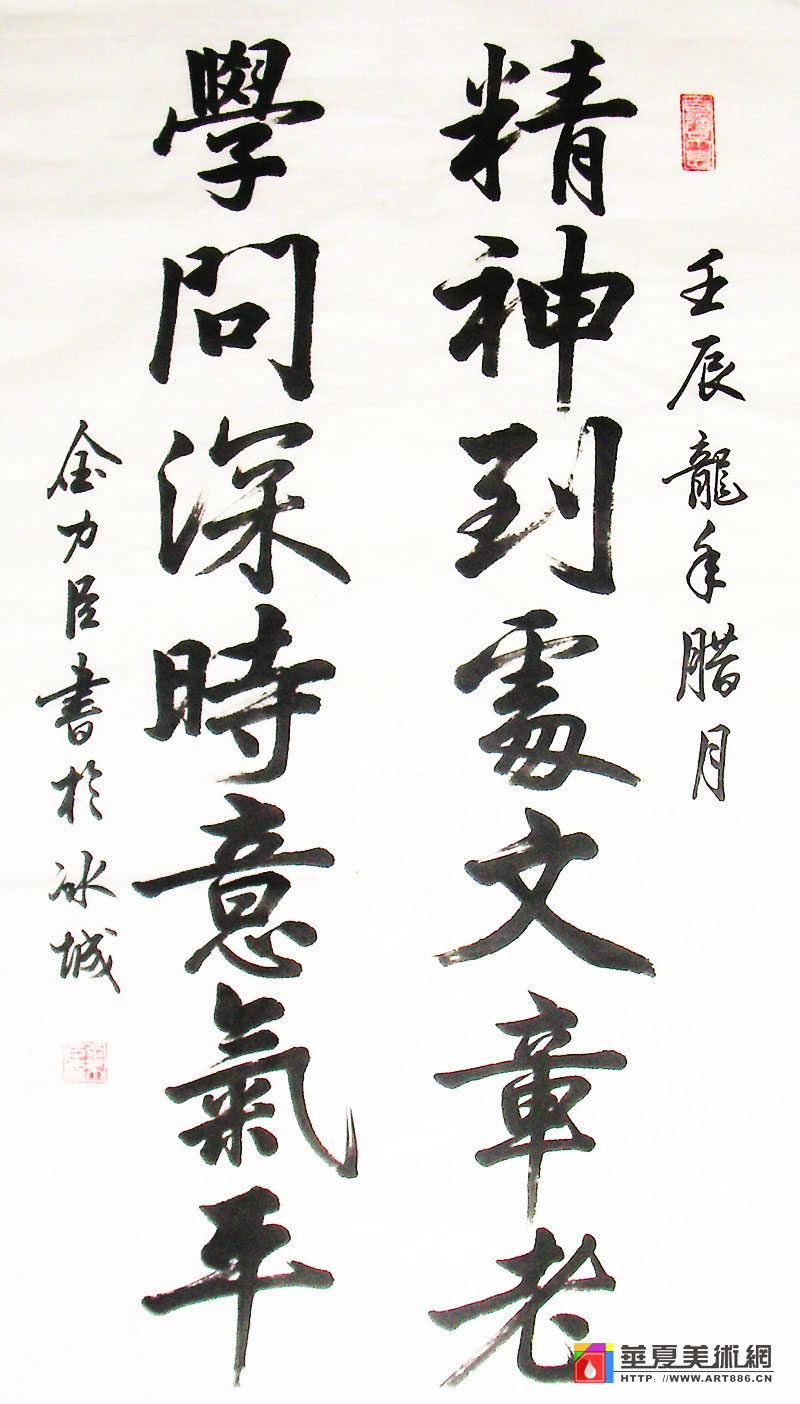 壬辰龍年腊月
精神到處文章老
學問深時意氣平
金力臣書於冰城
華夏美術網
HTTP://WWW.ART886.CN